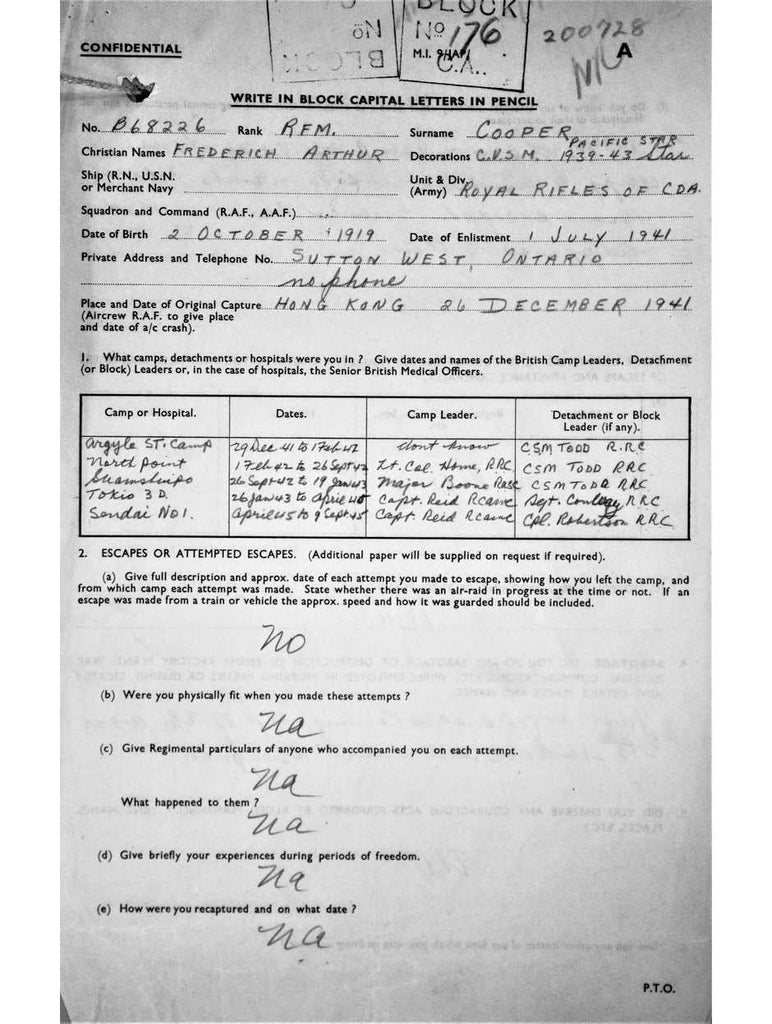 BLOCK
No 176
M.I. 9/JAP/
C.A.
200728
CONFIDENTIAL
A
WRITE IN BLOCK CAPITAL LETTERS IN PENCIL
No. B68226 Rank RFM. Surname COOPER
PACIFIC STAR
Christian Names FREDERICH ARTHUR Decorations C.V.S.M. 1939-43 Star
Ship (R.N., U.S.N. or Merchant Navy
Unit & Div. (Army) ROYAL RIFLES OF CDA.
Squadron and Command (R.A.F., A.A.F.)
Date of Birth 2 OCTOBER 1919 Date of Enlistment 1 JULY 1941
Private Address and Telephone No. SUTTON WEST, ONTARIO
no phone
Place and Date of Original Capture HONG KONG 26 DECEMBER 1941
(Aircrew R.A.F. to give place
and date of a/c crash).
1. What camps, detachments or hospitals were you in ? Give dates and names of the British Camp Leaders, Detachment
(or Block) Leaders or, in the case of hospitals, the Senior British Medical Officers.
Camp or Hospital. Dates. Camp Leader. Detachment or Block
Leader (if any).
Argyle ST. Camp 29 Dec 41 to 1 Feb 42 dont know CSM TODD R.RC
North Point 1 Feb 42 to 26 Sept 42 Lt. Col. Home, RRC CSM TODD RRC
Shamshuipo 26 Sept 42 to 19 Jan 43 Major Boone CSM TODD RRC
Tokio 3D. 26 Jan 43 to April 45 Capt. Reid Rcamc Sgt. RRC
Sendai No1. April 45 to 9 Sept 45 Capt. Reid Rcamc Cpl. Robertson RRC
2. ESCAPES OR ATTEMPTED ESCAPES. (Additional paper will be supplied on request if required).
(a) Give full description and approx. date of each attempt you made to escape, showing how you left the camp, and
from which camp each attempt was made. State whether there was an air-raid in progress at the time or not. If an
escape was made from a train or vehicle the approx. speed and how it was guarded should be included.
NO
(b) Were you physically fit when you made these attempts ?
Na
(c) Give Regimental particulars of anyone who accompanied you on each attempt.
Na
What happened to them ?
Na
(d) Give briefly your experiences during periods of freedom.
Na
(e) How were you recaptured and on what date ?
Na
P.T.O.